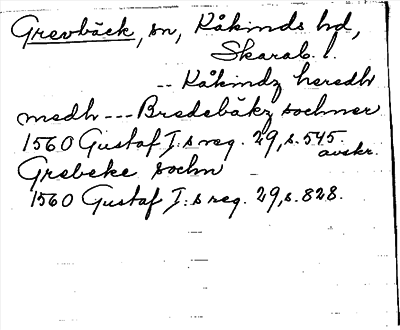 Grevbäck, sn, Kåkinds hd,
Skarab. l.
-- Kåkindz heredh
medh --- Bredebäkz sochner
1560 Gustaf I:s reg. 29, s. 545.
avskr.
Grebeke sochn
1560 Gustaf I:s reg. 29, s. 828.